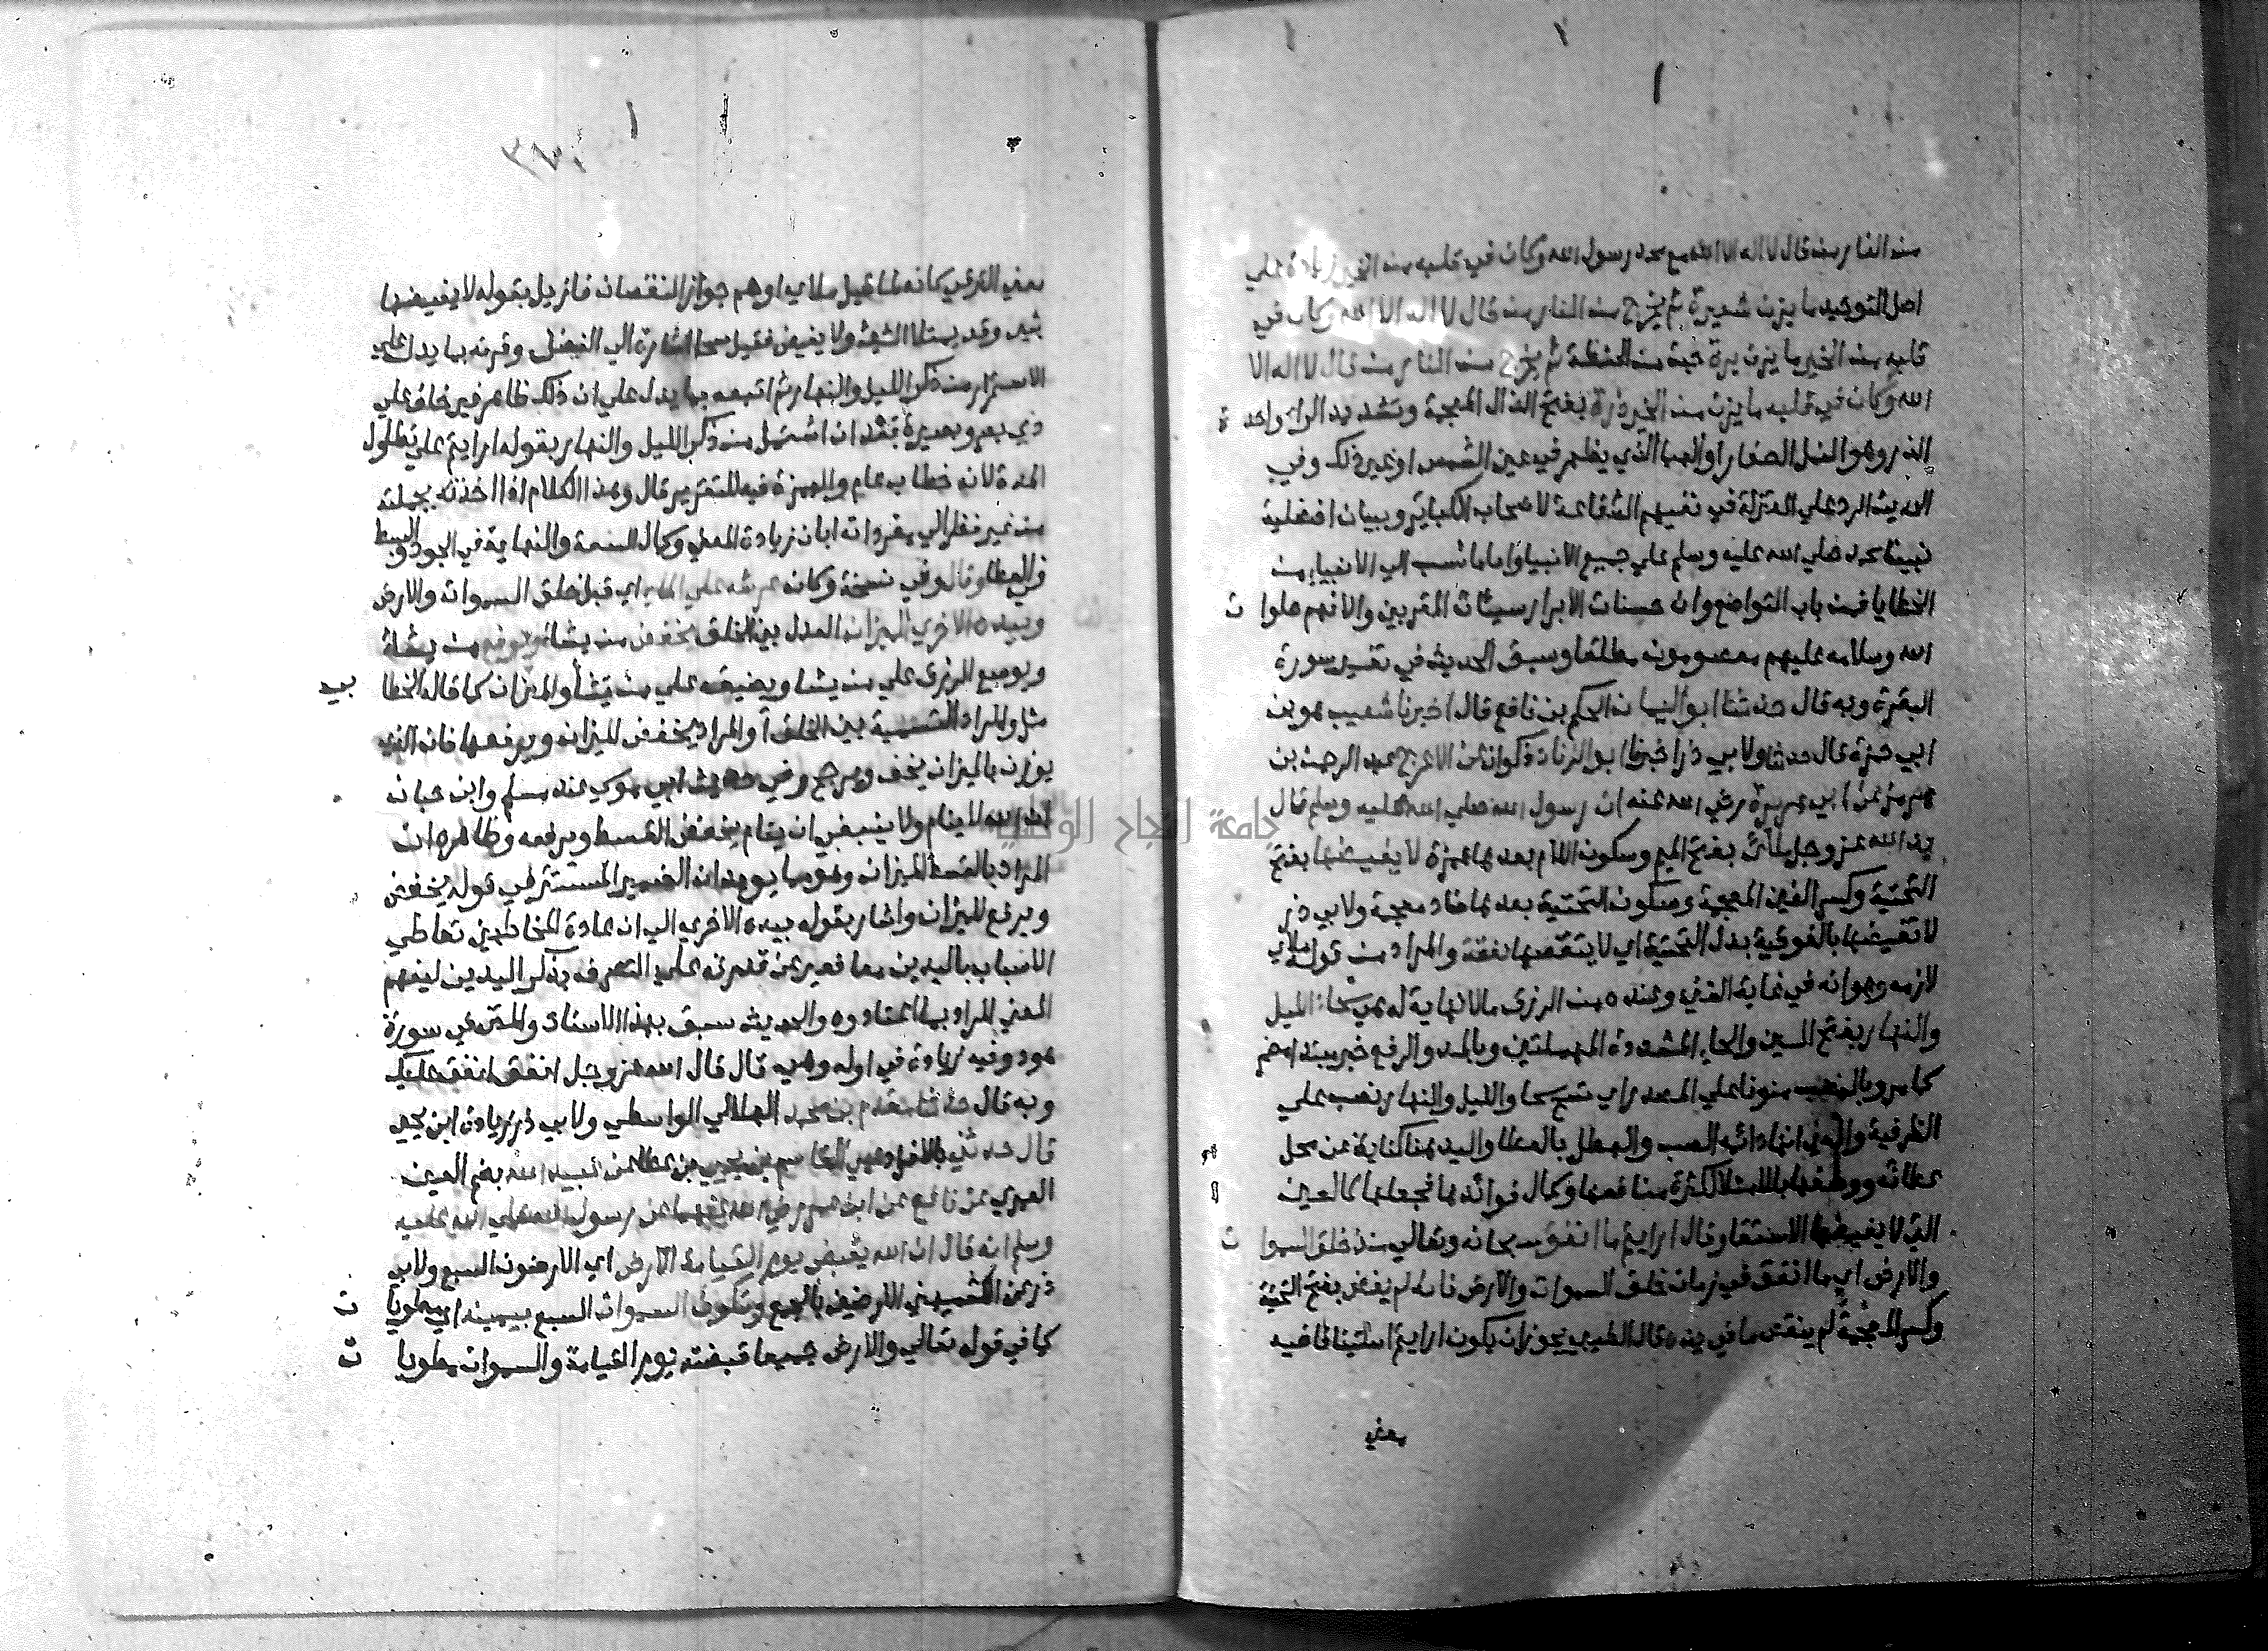 من النار من قال لا اله الا الله مع محمد رسول الله وكان في قلبه من الخير زيادة على
اصل التوحيد ما يزن شعيرة ثم يخرج من النار من قال لا اله الا الله وكان في
قلبه من الخير ما يزن برة حبة من الحنطة ثم يخرج من النار من قال لا اله الا
الله وكان في قلبه ما يزن من الخير ذرة بفتح الذال المعجمة وتشديد الراء واحدة
الذر وهو النمل الصغار او الهبا الذي يظهر في عين الشمس او غير ذلك وفي
الحديث الرد على المعتزلة في نفيهم الشفاعة لاصحاب الكباير وبيان افضلية
نبينا محمد صلي الله عليه وسلم علي جميع الانبيا واما ما نسب الي الانبياء من
الخطايا فمن باب التواضع وان حسنات الابرار سيئات المقربين والا فهم صلوات
الله وسلامه عليهم معصومون مطلقا وسبق الحديث في تفسير سورة
البقرة وبه قال حدثنا ابو اليمان الحكم بن نافع قال اخبرنا شعيب هو بن
ابي حمزة قال حدثنا ولابي ذر اخبرنا ابو الزناد ذكوان عن الاعرج عبد الرحمن بن
هرمز عن ابي هريرة رضي الله عنه ان رسول الله صلي الله عليه وسلم قال
يد الله عز وجل ملأى بفتح الميم وسكون اللام بعدها همزة لا يغيضها بفتح
التحتية وكسر الغين المعجمة وسكون التحتية بعدها ضاد معجمة ولابي ذر
لا تغيضها بالفوقية بدل التحتية اي لا ينقصها نفقة والمراد من قوله ملأي
لازمه وهو انه في غاية الغني وعنده من الرزق ما لا نهاية له هي سحاء الليل
والنهار بفتح السين والحاء المشددة المهملتين وبالمد والرفع خبر مبتدا مضم
كما مر وبالنصب منونا علي المصدر اي تسح سحا والليل والنهار نصب علي
الظرفية والمعني انها دائمه الصب والهطل بالعطا واليد هنا كناية عن محل
عطائه ووصفها بالامتلا لكثرة منافعها وكمال فوائدها فجعلها كالعين
التي لا يغيضها الاستقا وقال ارايتم ما انفق سبحانه وتعالي منذ خلق السموات
والارض اي ما انفق في زمان خلق السموات والارض فانه لم يغض بفتح التحتية
وكسر المعجمة لم ينقص ما في يده قال الطيبي يجوز ان يكون ارايتم استئنافا فيه
معني
معني الترقي كانه لما قيل ملاي اوهم جواز النقصان فازيل بقوله لا يغيضها
شي وقد يمتلا الشي ولا يغيض فقيل سحا اشارة الي الفيض وقرنه بما يدل علي
الاستمرار من ذكر الليل والنهار ثم اتبعه بما يدل علي ان ذلك ظاهر غير خاف علي
ذي بصر وبصيرة بعد ان اشتمل من ذكر الليل والنهار بقوله ارايتم علي تطاول
المدة لانه خطاب عام والهمزة فيه للتقرير قال وهذا الكلام اذا اخذته بجملته
من غير نظر الي مفرداته ابان زيادة المعني وكمال السعة والنهاية في الجود والبسط
في العطا وقال وفي نسخة وكان عرشه علي الماء اي قبل خلق السموات والارض
وبيده الاخري الميزان العدل بين الخلق يخفض من يشاء ويرفع من يشاء
ويوسع الرزق علي من يشا ويضيقه علي من يشأ والميزان كما قاله الخطابي
مثل والمراد القسمة بين الخلق او المراد يخفض الميزان ويرفعها فان الذي
يوزن بالميزان يخف ويرجح وفي حديث ابي موسي عند مسلم وابن حبان
ان الله لا ينام ولا ينبغي ان ينام يخفض القسط ويرفعه وظاهره ان
المراد بالقسط الميزان وهو مما يويد ان الضمير المستتر في قوله يخفض
ويرفع للميزان واشار بقوله بيده الاخري الي ان عادة المخاطبين تعاطي
الاسباب باليدين معا فعبر عن قدرته علي التصرف بذكر اليدين ليفهم
المعني المراد بما اعتادوه والحديث سبق بهذا الاسناد والمتن في سورة
هود وفيه زيادة في اوله وهي قال قال الله عز وجل انفق انفق عليك
وبه قال حدثنا مقدم بن محمد الهلالي الواسطي ولابي ذر زيادة ابن يحيي
قال حدثني بالافراد عمي القاسم بن يحيي بن عطا عن عبيد الله بضم العين
العمري عن نافع عن ابن عمر رضي الله عنهما عن رسول الله صلي الله عليه
وسلم انه قال ان الله يقبض يوم القيامة الارض اي الارضون السبع ولابي
ذر عن الكشميهني الارضين بالجمع وتكون السموات السبع بيمينه اي مطويات
كما في قوله تعالي والارض جميعا قبضته يوم القيامة والسموات مطويات
جامعة النجاح الوطنية